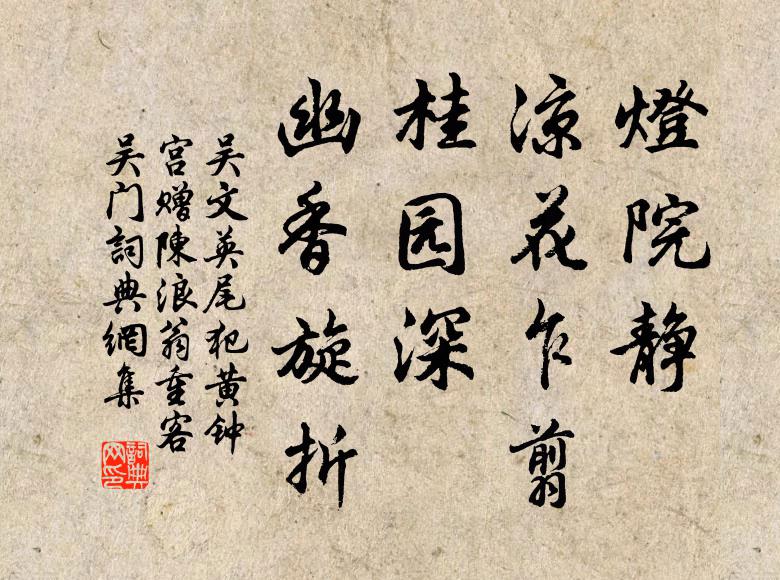 燈院静
凉花乍翦
桂园深
幽香旋折
吴文英尾犯黄钟
宫赠陳浪翁重客
吴门詞典網集
詞典网印